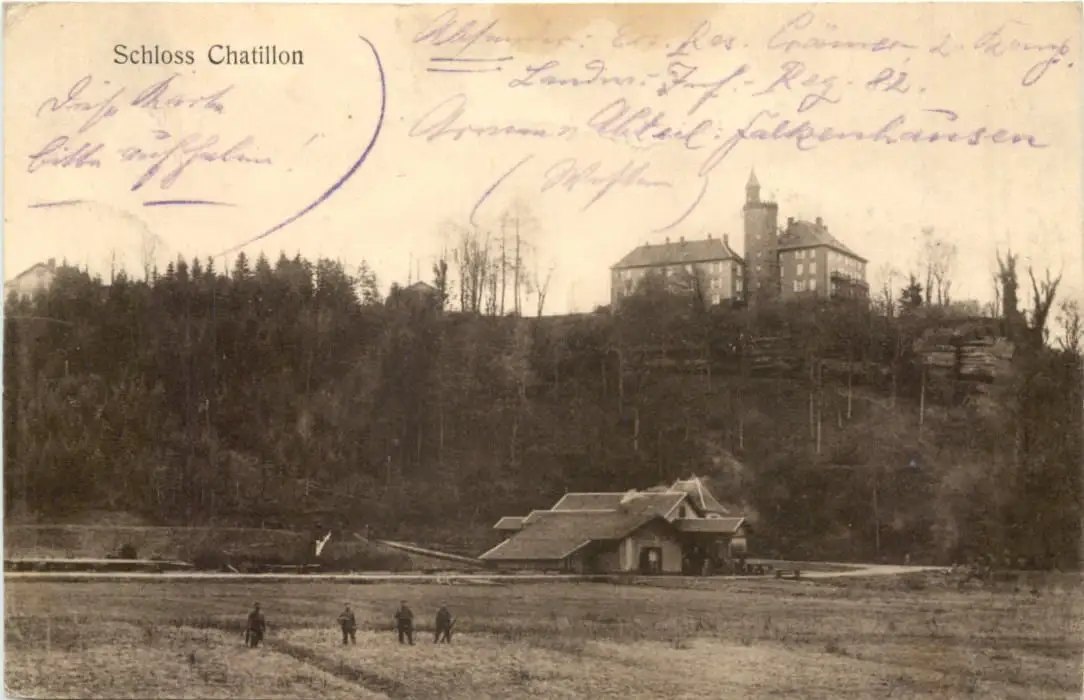 Schloss Chatillon
Diese Karte
bitte aufheben!
Absender: Ers. Res. Crämer, 2. Komp.
Landw. Inf. Reg. 82.
Armee Abteil. Falkenhausen
(Westen)